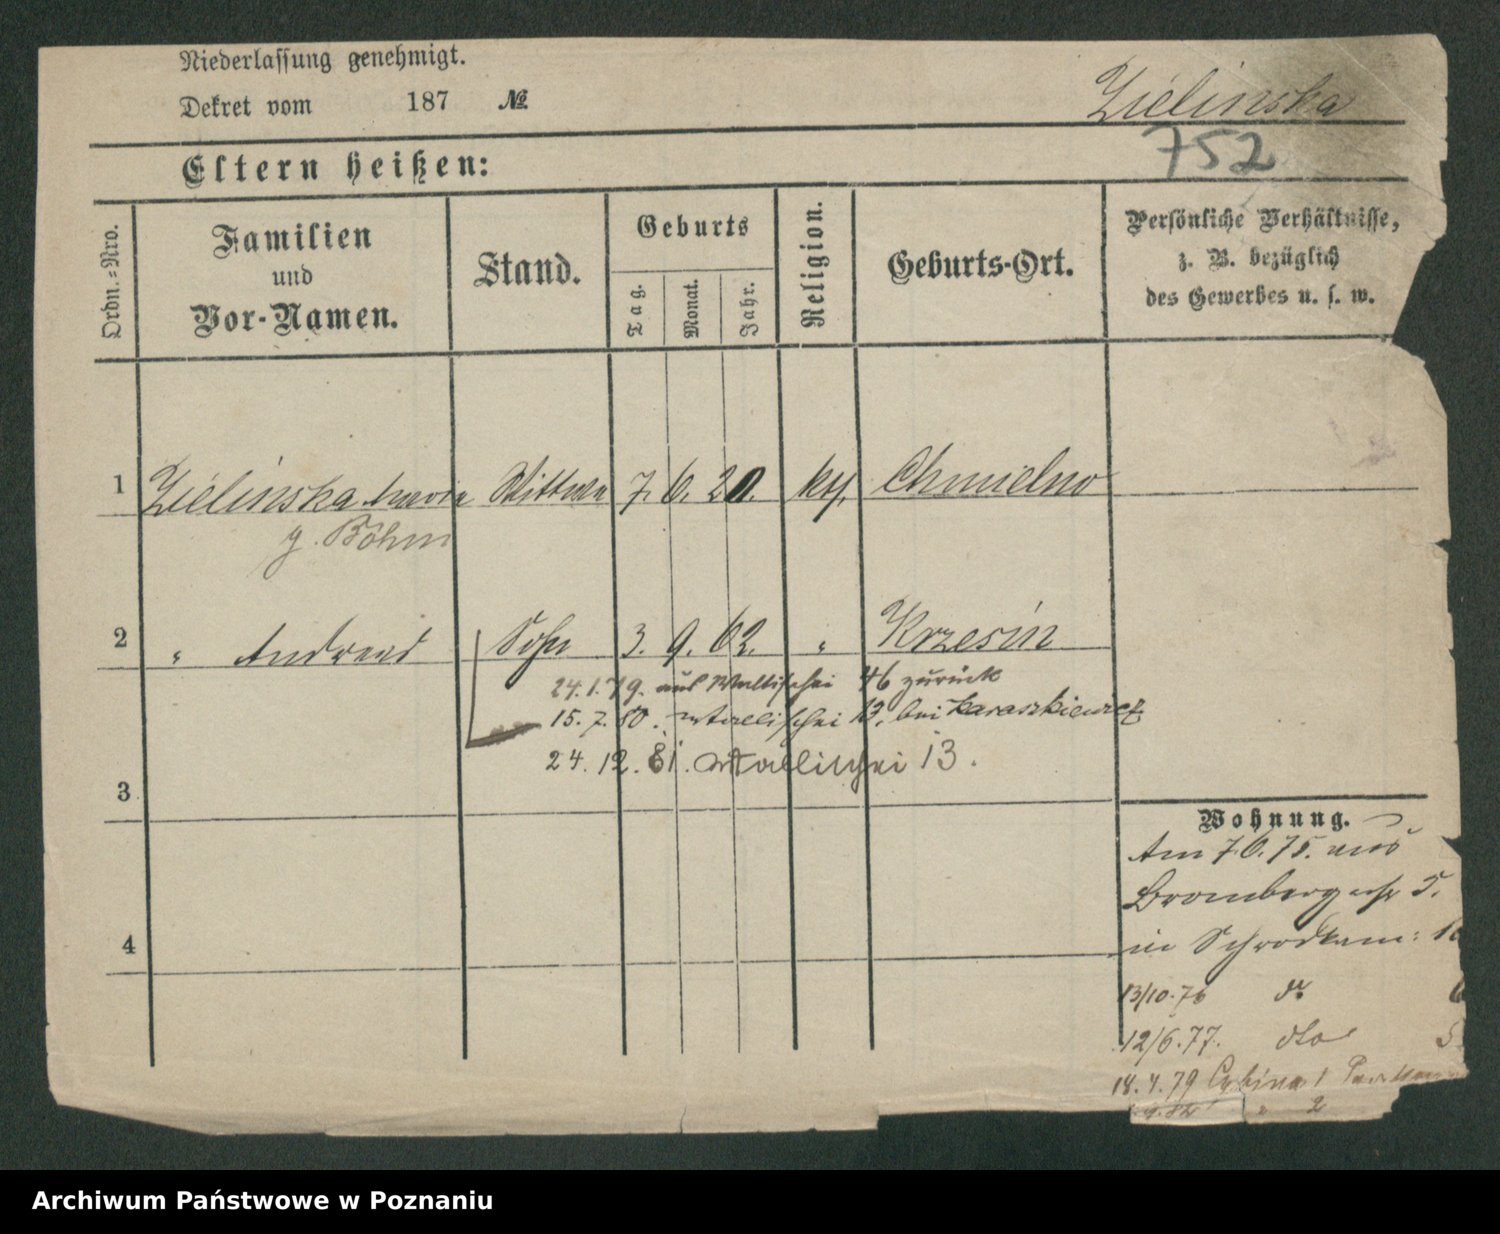 Niederlassung genehmigt.
Dekret vom 187 № Zielinska
752
Eltern heißen:
Ordn.-Nro.
Familien
und
Vor-Namen.
Stand.
Geburts
Tag.
Monat.
Jahr.
Religion.
Geburts-Ort.
Persönliche Verhältnisse,
z. B. bezüglich
des Gewerbes u. s. w.
1 Zielinska Maria Wittwe 7. 6. 20. kg. Chmielno
g. Böhm
2 " Andreas Sohn 3. 9. 62. " Krzesin
24.1.79. aus Wallischei 46 zurück
15.7.80. Wallischei 13. bei Karaszkiewicz
24.12.81. Wallischei 13.
3
4
Wohnung.
Am 7.6.75. aus
Bromberg 5.
in Schrodkam:
13/10.76 do
12/6.77. dto 5
18.4.79 Cybina 1
" 2
Archiwum Państwowe w Poznaniu